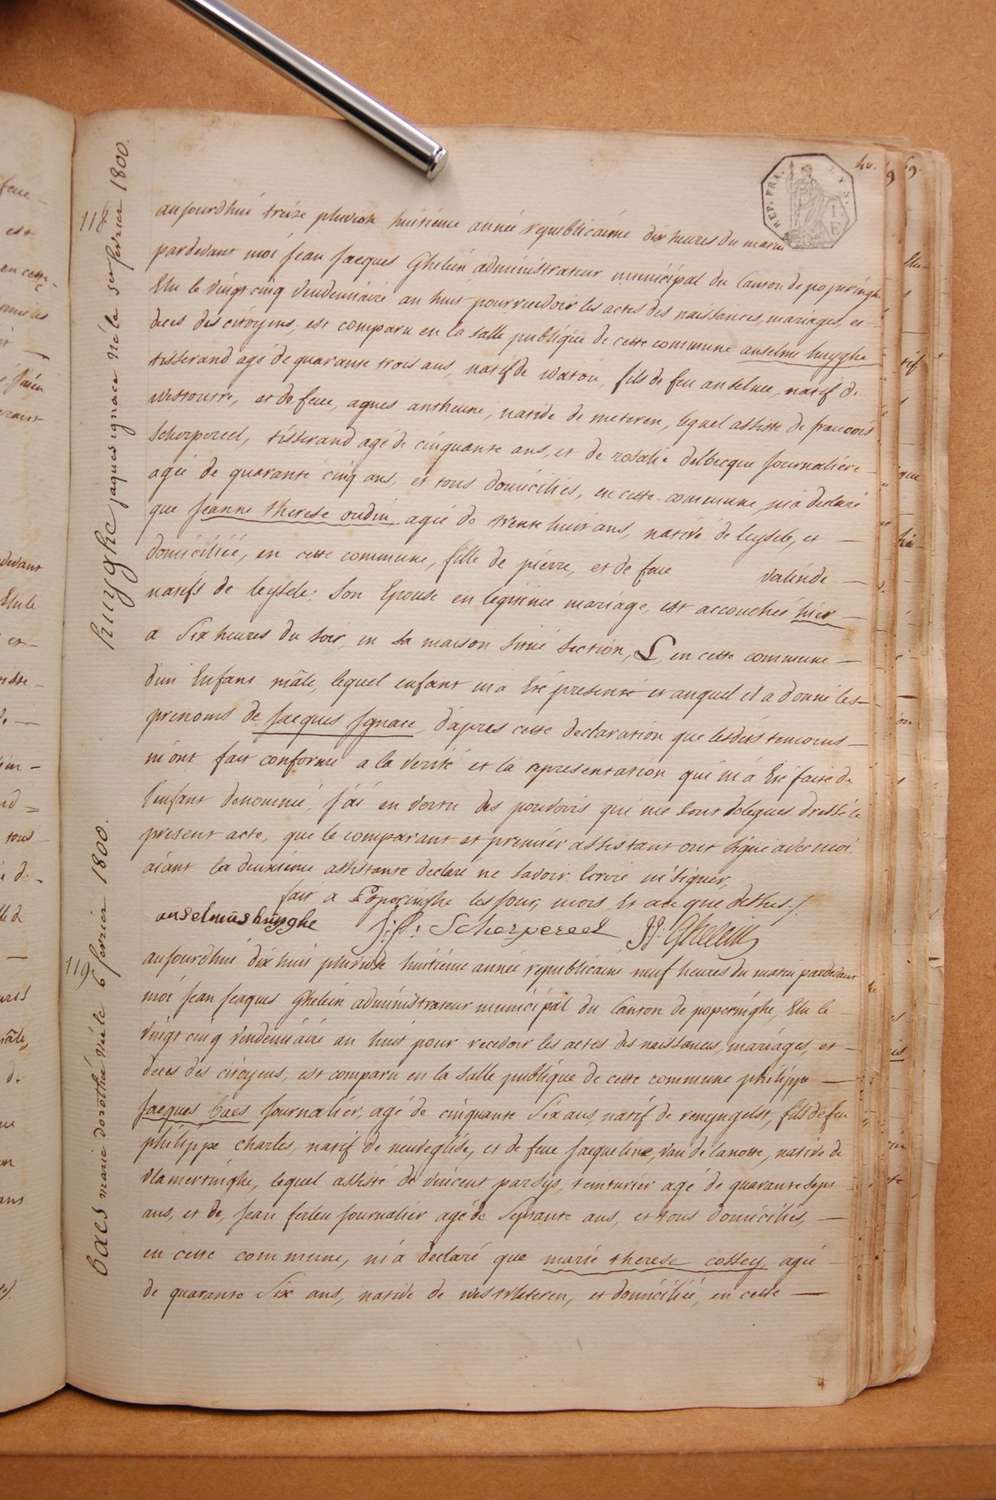 40.
REP. FRA.
118
huyghe jaques ignace né le 1er fevrier 1800.
aujourdhui treize pluviose huitiéme année republicaine dix heures du matin
pardevant moi Jean Jacques Ghelein administrateur municipal du Canton de poperinghe
Elu le vingt cinq vendemiaire an huit pour recevoir les actes des naissances, mariages, et
deces des citoyens, est comparu en la salle publique de cette commune anselme huyghe
tisserand agé de quarante trois ans, natif de watou, fils de feu anselme, natif de
westoutre, et de feue, agnes antheune, native de meteren, lequel assisté de francois
Scherpereel, tisserand agé de cinquante ans, et de rosalie delbecque journaliére
agée de quarante cinq ans, et tous domiciliés, en cette commune, m'a declaré
que jeanne therese oudin agée de trente huit ans, native de leysele, et
domiciliée, en cette commune, fille de pierre, et de feue valende
natifs de leysele; Son Epouse en legitime mariage, est accouchée hier
a Six heures du soir, en sa maison Située Section, C, en cette commune
d'un Enfant mâle, lequel enfant m'a été presenté et auquel il a donné les
prenoms de Jacques Ignace, d'apres cette declaration que lesdits temoins
m'ont fait conforme a la verité et la representation qui m'a été faite de
l'enfant denommé, j'ai en vertu des pouvoirs qui me sont delegues dressé le
present acte, que le comparant et premier assistant ont signé avec moi
aiant la deuxieme assistante declaré ne savoir ecrire ni signer,
fait a Poperinghe les jour, mois et an que dessus /.
anselmus huyghe J: f: Scherpereel JJ. Ghelein
119
baes marie dorothée née le 6 fevrier 1800.
aujourdhui dix huit pluviose huitiéme année republicaine neuf heures du matin pardevant
moi Jean Jacques Ghelein administrateur municipal du Canton de poperinghe, Elu le
vingt cinq vendemiaire an huit pour recevoir les actes des naissances, mariages, et
deces des citoyens, est comparu en la salle publique de cette commune philippe
Jacques baes journalier, agé de cinquante Six ans, natif de renyngelst, fils de feu
philippe charles, natif de neuveglise, et de feue Jacqueline, van de lanotte, native de
vlamertinghe, lequel assisté de vincent pardys, teinturier agé de quarante sept
ans, et de, jean ferleu journalier agé de Septante ans, et tous domiciliés,
en cette commune, m'a declaré que marie therese cossey, agée
de quarante Six ans, native de westvleteren, et domiciliée, en cette